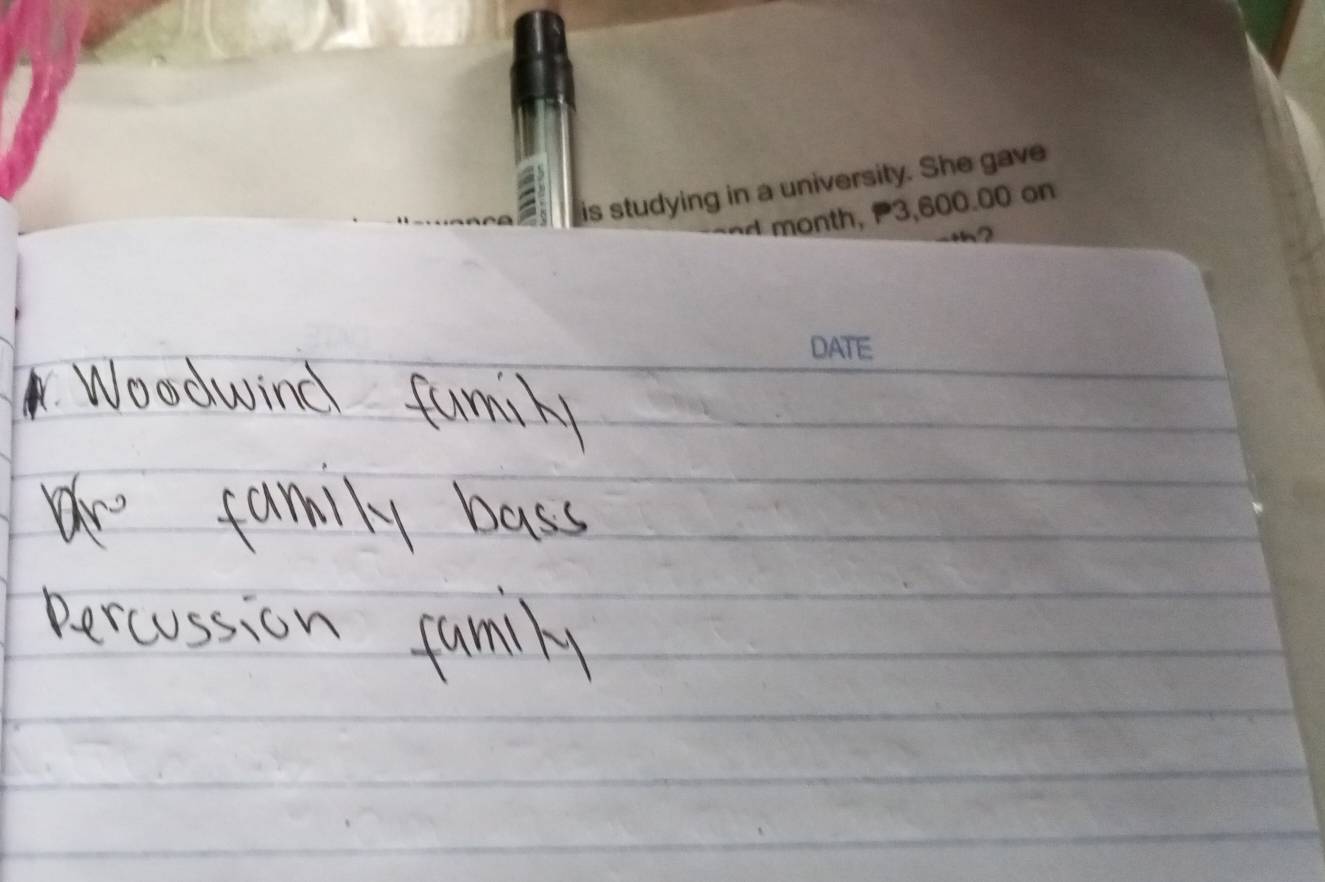 is studying in a university. She gave
month, ₱3,600.00 on
DATE
Woodwind family
family bass
Percussion family